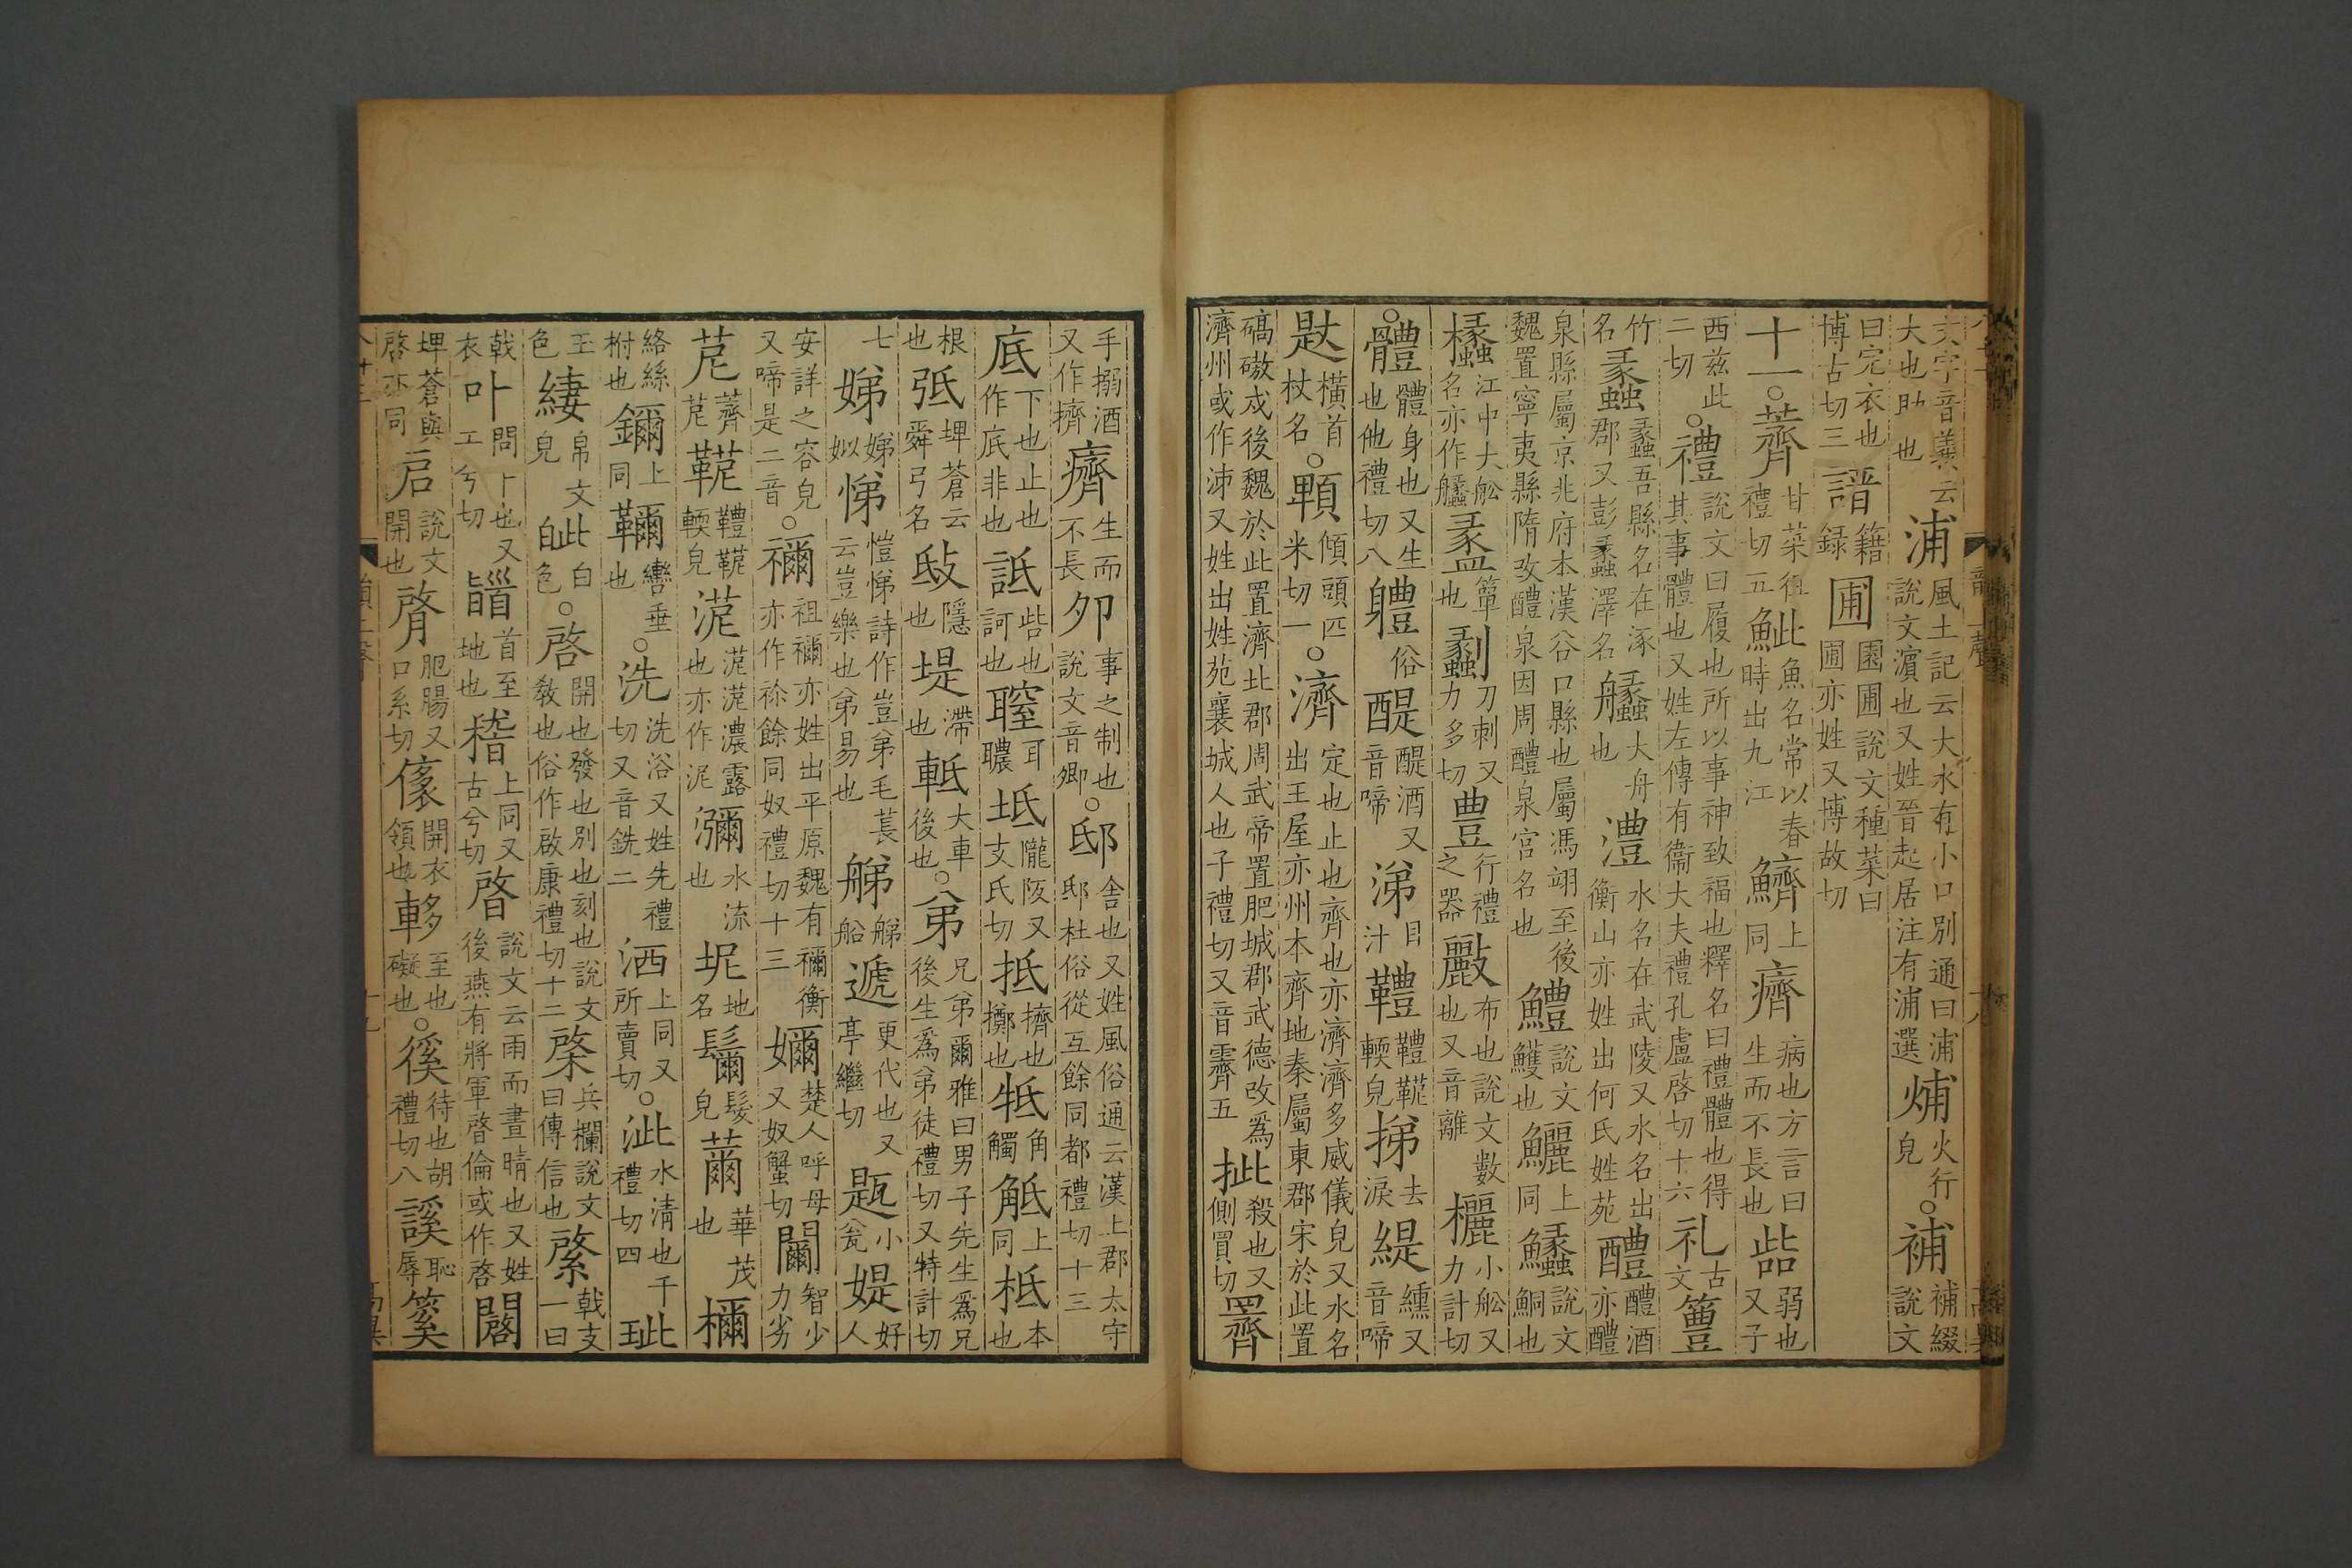 大字音義云大也助也浦風土記云大水有小口別通曰浦說文濵也又姓晉起居注有浦選烳火行皃○補補綴說文
曰完衣也博古切三譜籍錄圃園圃說文種菜曰圃亦姓又博故切
十一○薺甘菜徂禮切五鮆魚名常以春時出九江鱭上同癠病也方言曰生而不長也啙弱也又子
西兹此二切○禮說文曰履也所以事神致福也釋名曰禮體也得其事體也又姓左傳有衞大夫禮孔盧啓切十六礼古文
竹名蠡蠡吾縣名在涿郡又彭蠡澤名大舟也澧水名在武陵又水名出衡山亦姓出何氏姓苑醴醴酒亦醴
泉縣屬京兆府本漢谷口縣也屬馮翊至後魏置寧夷縣隋改醴泉因周醴泉宮名也鱧說文鱯也鱺上同說文鮦也
欚江中大舩名亦作簞也劙刀刺又力多切豊行禮之器㪫布也說文數也又音離欐小舩又力計切
○體體身也又生也他禮切八軆俗醍醍酒又音啼涕目汁軆軆䩭輭皃挮去淚緹纁又音啼
橫首杖名○頣傾頭匹米切一○濟定也止也齊也亦濟濟多威儀皃又水名出王屋亦州本齊地秦屬東郡宋於此置
碻磝戍後魏於此置濟北郡周武帝置肥城郡武德改爲濟州或作泲又姓出姓苑襄城人也子禮切又音霽五批殺也又側買切
手搦酒又作擠癠生而不長夘事之制也說文音卿○邸舍也又姓風俗通云漢上郡太守邸杜俗從互餘同都禮切十三
底下也止也作底非也詆呰也訶也耳聹坻隴阪又支氏切抵擠也擲也牴角觸觝上同柢本也
根也弤埤蒼云舜弓名隱也堤滯也軧大車後也○弟兄弟爾雅曰男子先生爲兄後生爲弟徒禮切又特計切
七娣娣姒悌愷悌詩作豈弟毛萇云豈樂也弟易也艜船遞更代也又亭繼切小瓫媞好人
安詳之容皃又啼是二音○禰祖禰亦姓出平原魏有禰衡亦作祢餘同奴禮切十三嬭楚人呼母又奴蟹切智少力劣
苨薺苨軆䩭輭皃濃露也亦作泥瀰水流也坭地名鬫髮皃薾華茂也檷
絡絲柎也鑈上同轡垂也○洗洗浴又姓先禮切又音銑二洒上同又所賣切○泚水清也千禮切四玼
玉色緀帛文皃白色○啓開也發也別也刻也說文教也俗作啟康禮切十二棨兵欄說文曰傳信也綮戟支一曰
戟衣卟問卜也又工兮切首至地也䅲上同又古兮切晵說文云雨而晝晴也又姓後燕有將軍晵倫或作啓
埤蒼與啓亦同启說文開也肥腸又口系切開衣領也至也礙也○徯待也胡禮切八謑恥辱